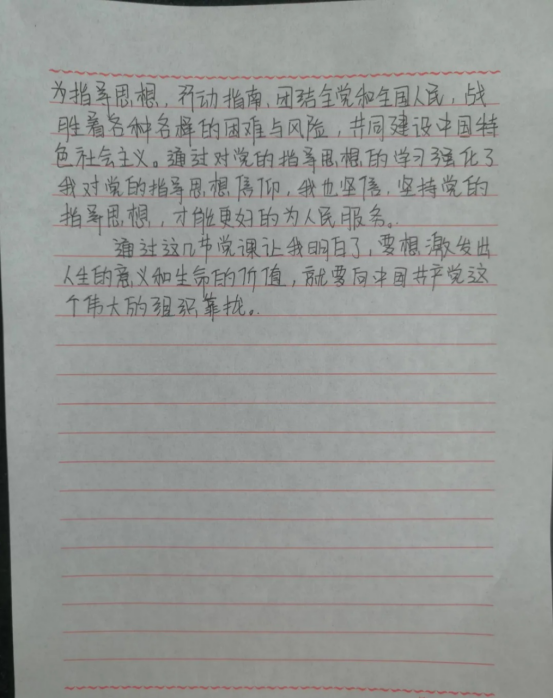 为指导思想，行动指南，团结全党和全国人民，战
胜着各种各样的困难与风险，共同建设中国特
色社会主义。通过对党的指导思想的学习强化了
我对党的指导思想信仰，我也坚信，坚持党的
指导思想，才能更好的为人民服务。
通过这几节党课让我明白了，要想激发出
人生的意义和生命的价值，就要向中国共产党这
个伟大的组织靠拢。